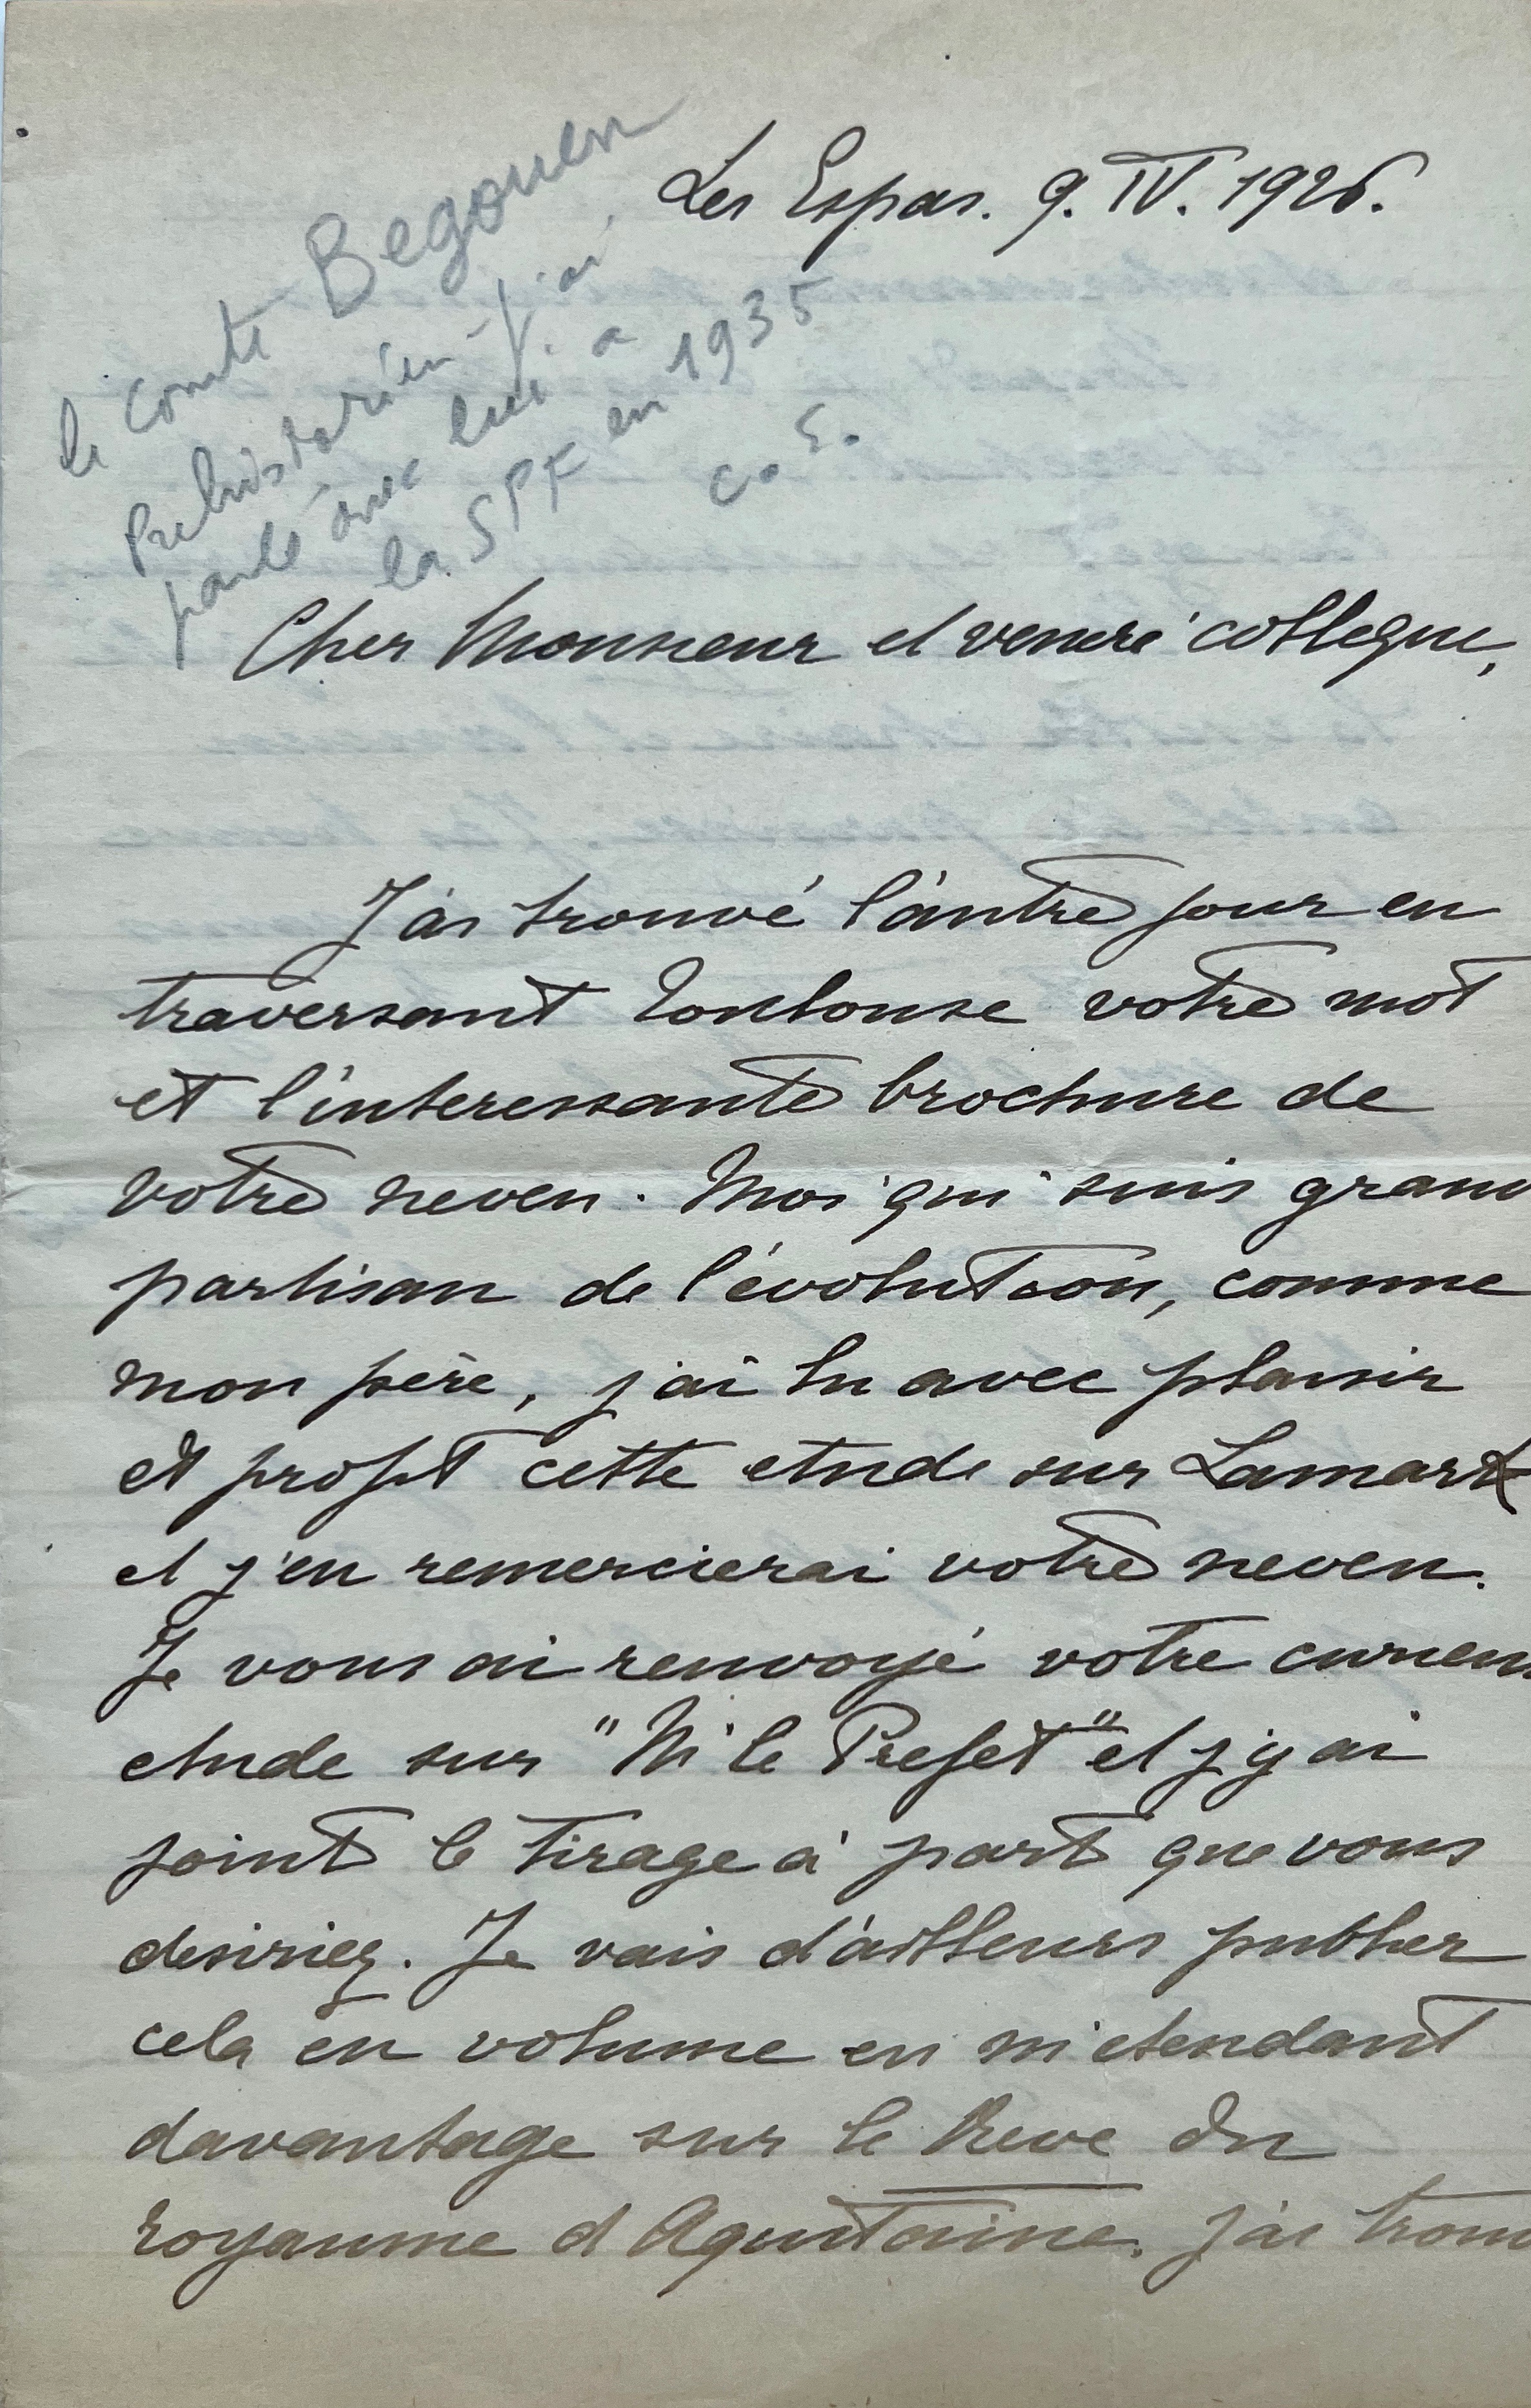 Les Espas. 9. IV. 1926.
le comte Begouen
Prehistorien - j'ai
parlé avec lui a
la SPF en 1935
C. E.
Cher Monsieur et veneré collegue,
J'ai trouvé l'autre jour en
traversant Toulouse votre mot
et l'interessante brochure de
votre neveu. Moi qui suis grand
partisan de l'évolution, comme
mon père, j'ai lu avec plaisir
et profit cette etude sur Lamark
et j'en remercierai votre neveu.
Je vous ai renvoyé votre curieuse
etude sur "Ni le Prefet" et j'y ai
joint le tirage à part que vous
desiriez. Je vais d'ailleurs publier
cela en volume en m'etendant
davantage sur le Reve du
royaume d Aquitaine. J'ai trouv